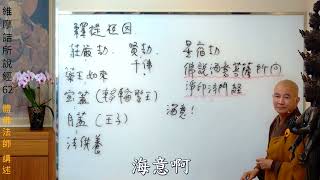 維摩詰所說經62
體佛法師 講述
釋從因
莊嚴劫 賢劫 星宿劫
千佛
藥王如來
佛說海意菩薩所問
淨印法門經
寶蓋(轉輪聖王)
月蓋(王子)
海意!
法供養
海意啊